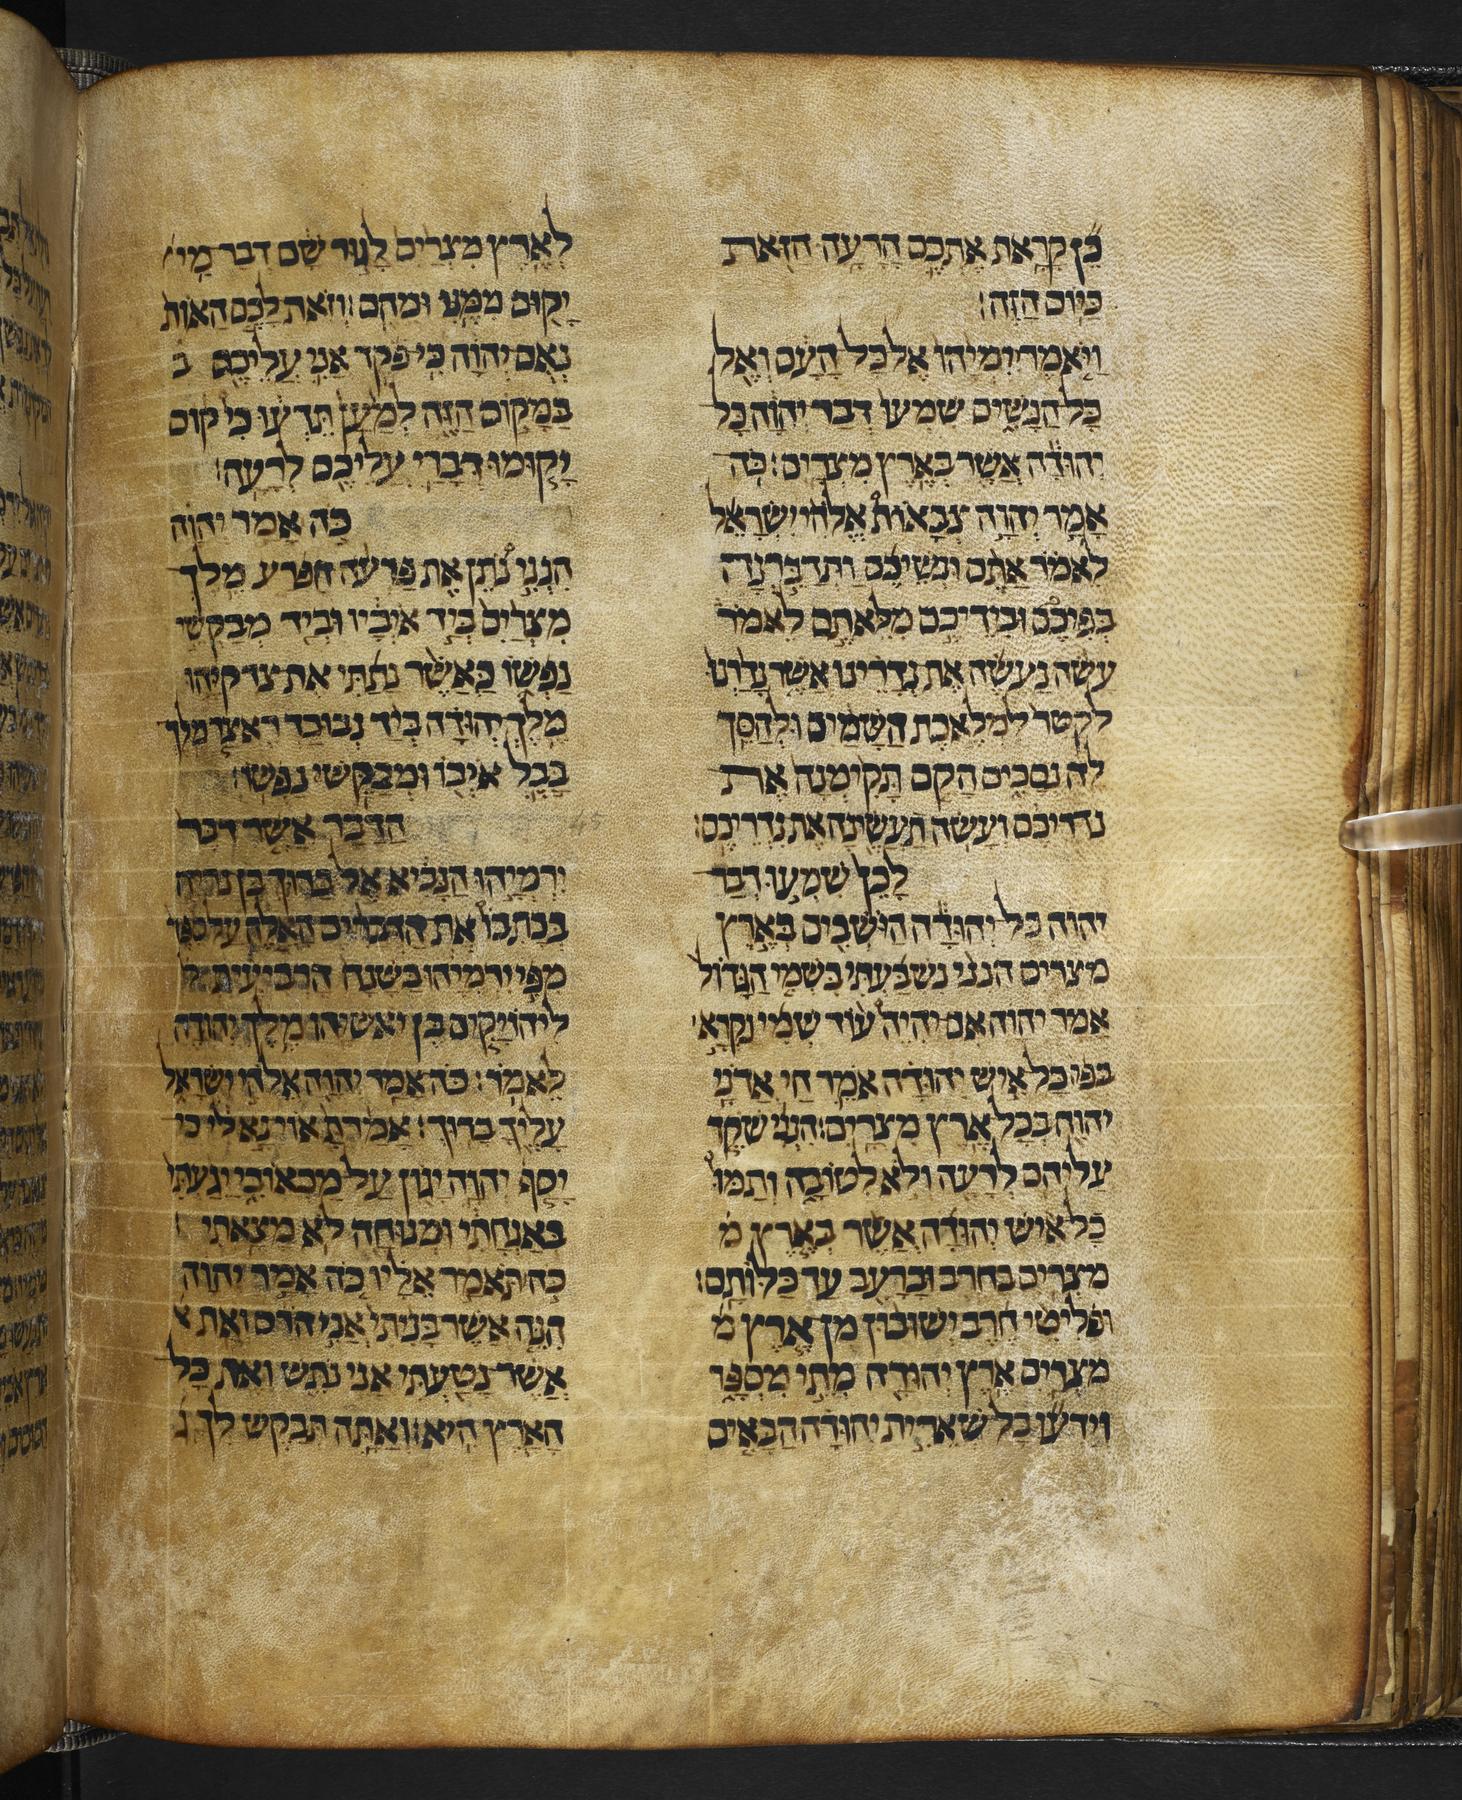 כן קראת אתכם הרעה הזאת
כיום הזה׃
ויאמר ירמיהו אל כל העם ואל
כל הנשים שמעו דבר יהוה כל
יהודה אשר בארץ מצרים׃ כה
אמר יהוה צבאות אלהי ישראל
לאמר אתם ונשיכם ותדברנה
בפיכם ובידיכם מלאתם לאמר
עשה נעשה את נדרינו אשר נדרנו
לקטר למלאכת השמים ולהסך
לה נסכים הקם תקימנה את
נדריכם ועשה תעשינה את נדריכם׃
לכן שמעו דבר
יהוה כל יהודה הישבים בארץ
מצרים הנני נשבעתי בשמי הגדול
אמר יהוה אם יהיה עוד שמי נקרא
בפי כל איש יהודה אמר חי אדני
יהוה בכל ארץ מצרים׃ הנני שקד
עליהם לרעה ולא לטובה ותמו
כל איש יהודה אשר בארץ מ
מצרים בחרב וברעב עד כלותם׃
ופליטי חרב ישובון מן ארץ מ
מצרים ארץ יהודה מתי מספר
וידעו כל שארית יהודה הבאים
לארץ מצרים לגור שם דבר מי
יקום ממני ומהם׃ וזאת לכם האות
נאם יהוה כי פקד אני עליכם ב
במקום הזה למען תדעו כי קום
יקומו דברי עליכם לרעה׃
כה אמר יהוה
הנני נתן את פרעה חפרע מלך
מצרים ביד איביו וביד מבקשי
נפשו כאשר נתתי את צדקיהו
מלך יהודה ביד נבוכדראצר מלך
בבל איבו ומבקשי נפשו׃
הדבר אשר דבר
ירמיהו הנביא אל ברוך בן נריה
בכתבו את הדברים האלה על ספר
מפי ירמיהו בשנה הרביעית ל
ליהויקים בן יאשיהו מלך יהודה
לאמר׃ כה אמר יהוה אלהי ישראל
עליך ברוך׃ אמרת אוי נא לי כי
יסף יהוה יגון על מכאובי יגעתי
באנחתי ומנוחה לא מצאתי
כה תאמר אליו כה אמר יהוה
הנה אשר בניתי אני הרס ואת א
אשר נטעתי אני נתש ואת כל
הארץ היא׃ ואתה תבקש לך ג